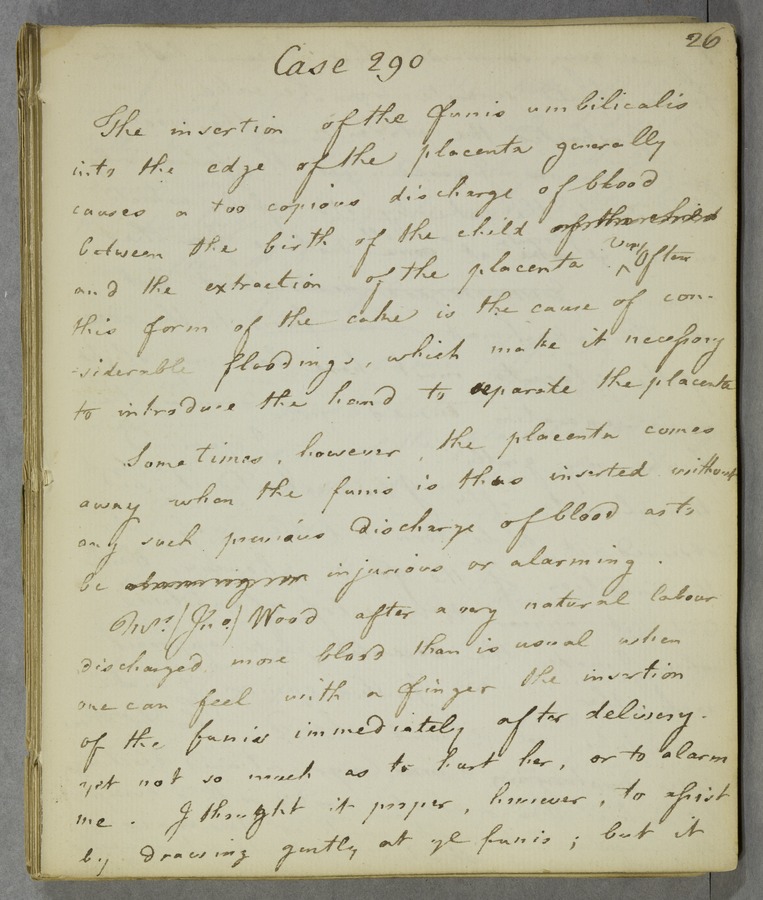 26
Case 290
The insertion of the funis umbilicalis
into the edge of the placenta generally
causes a too copious discharge of blood
between the birth of the child of the child
and the extraction of the placenta. Very often
this form of the cake is the cause of con-
-siderable floodings, which make it necessary
to introduce the hand to separate the placenta
Sometimes, however, the placenta comes
away when the funis is thus inserted without
any such previous discharge of blood as to
be alarming or injurious or alarming.
Mrs. (Jno.) Wood after a very natural labour
discharged more blood than is usual when
one can feel with a finger the insertion
of the funis immediately after delivery.
yet not so much as to hurt her, or to alarm
me. I thought it proper, however, to assist
by drawing gently at ye funis; but it